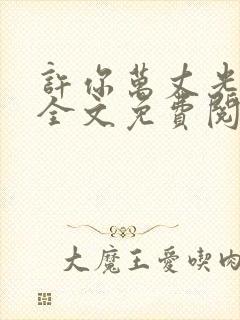 許你萬丈光
全文免費閱
大魔王愛喫肉